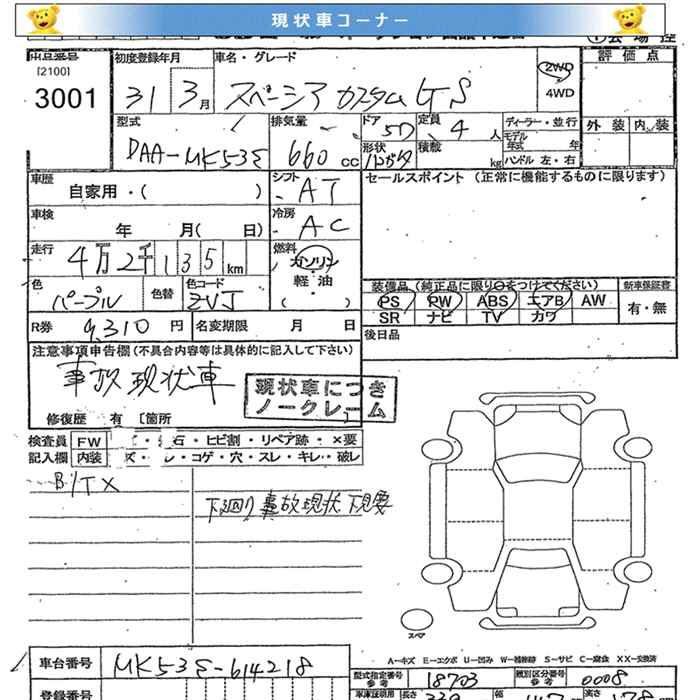 現状車コーナー
出品番号 初度登録年月 車名・グレード 評価点
[2100]
3001 31 3月 スペーシア カスタム GS 2WD
4WD
外装 内装
型式 排気量 ドア 定員 ディーラー・並行
DAA-MK53S 660cc 5D 4人 モデル年式 年
形状 積載 kg ハンドル 左・右
車歴 シフト セールスポイント (正常に機能するものに限ります)
自家用・( ) AT
車検 冷房
年 月( 日) AC
走行 燃料
4万2千135km ガソリン
軽・油
色 色替 色コード ( )
パープル ZVJ
装備品(純正品に限り○をつけてください) 新車保証書
PS PW ABS エアB AW 有・無
SR ナビ TV カワ
R券 9,310円 名変期限 月 日 後日品
注意事項申告欄(不具合内容等は具体的に記入して下さい)
事故現状車
現状車につき
ノークレーム
修復歴 有 [箇所
検査員 FW 石・ヒビ割・リペア跡・×要
記入欄 内装 コゲ・穴・スレ・キレ・破レ
B/T X
下廻り事故現状 下見要
スペア
A-キズ E-エクボ U-凹み W-補修跡 S-サビ C-腐食 XX-交換済
車台番号 MK53S-614218
型式指定番号 参考 18703 類別区分番号 参考 0008
登録番号
車庫証明用 長さ 339 幅 147 高さ 178